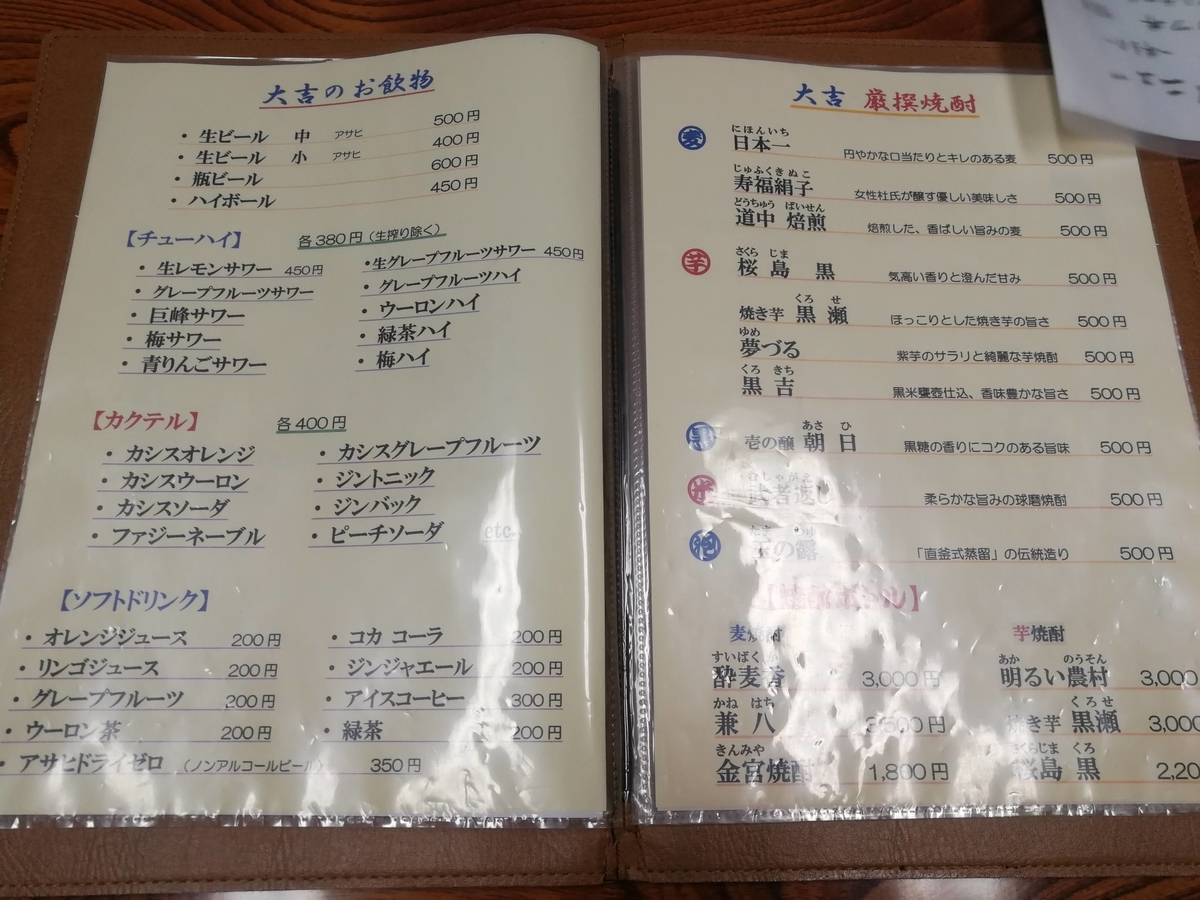 大吉のお飲物
・生ビール 中 アサヒ 500円
・生ビール 小 アサヒ 400円
・瓶ビール 600円
・ハイボール 450円
【チューハイ】 各380円（生搾り除く）
・生レモンサワー 450円
・グレープフルーツサワー
・巨峰サワー
・梅サワー
・青りんごサワー
・生グレープフルーツサワー 450円
・グレープフルーツハイ
・ウーロンハイ
・緑茶ハイ
・梅ハイ
【カクテル】 各400円
・カシスオレンジ
・カシスウーロン
・カシスソーダ
・ファジーネーブル
・カシスグレープフルーツ
・ジントニック
・ジンバック
・ピーチソーダ etc.
【ソフトドリンク】
・オレンジジュース 200円
・リンゴジュース 200円
・グレープフルーツ 200円
・ウーロン茶 200円
・アサヒドライゼロ （ノンアルコールビール） 350円
・コカ コーラ 200円
・ジンジャエール 200円
・アイスコーヒー 300円
・緑茶 200円
大吉 厳撰焼酎
麦
にほんいち
日本一 円やかな口当たりとキレのある麦 500円
じゅふくきぬこ
寿福絹子 女性杜氏が醸す優しい美味しさ 500円
どうちゅう ばいせん
道中 焙煎 焙煎した、香ばしい旨みの麦 500円
芋
さくら じま
桜島 黒 気高い香りと澄んだ甘み 500円
くろ せ
焼き芋 黒瀬 ほっこりとした焼き芋の旨さ 500円
ゆめ
夢づる 紫芋のサラリと綺麗な芋焼酎 500円
くろ きち
黒吉 黒米甕壺仕込、香味豊かな旨さ 500円
あさ ひ
壱の醸 朝日 黒糖の香りにコクのある旨味 500円
むしゃがえ
武者返し 柔らかな旨みの球磨焼酎 500円
泡
の露 「直釜式蒸留」の伝統造り 500円
麦焼酎
すいばく
酔麦香 3,000円
かね はち
兼八 3,500円
きんみや
金宮焼酎 1,800円
芋焼酎
あか のうそん
明るい農村 3,000
くろせ
焼き芋 黒瀬 3,000
さくらじま くろ
桜島 黒 2,20